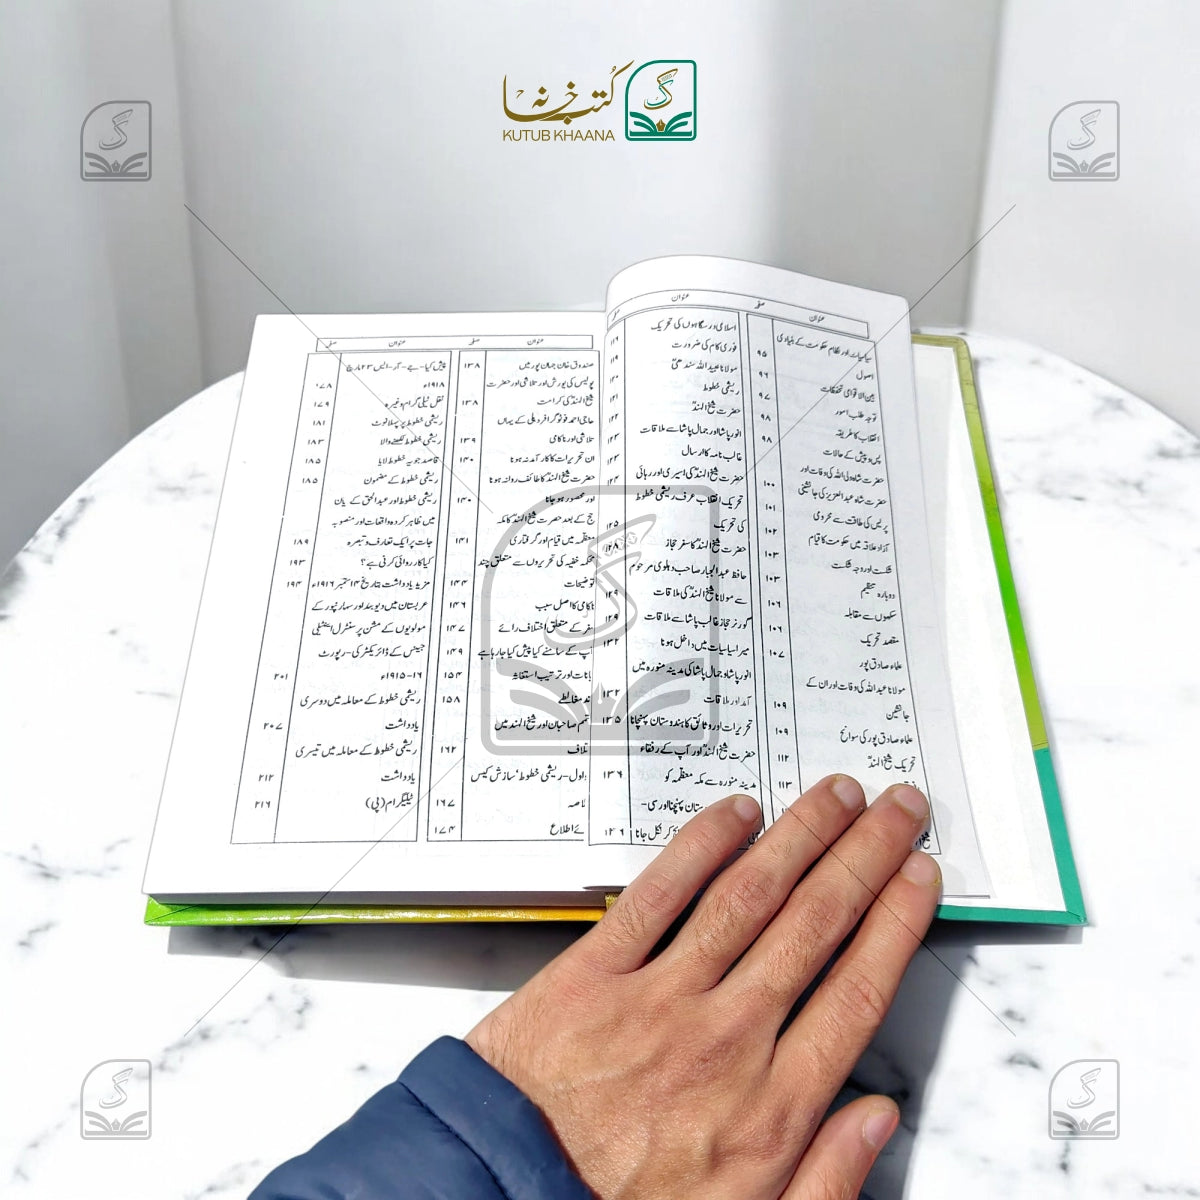 کتب خانہ
KUTUB KHAANA
عنوان
صفحہ
عنوان
صفحہ
سیاسیات اور نظام حکومت کے بنیادی
اصول
۹۵
بین الاقوامی تحفظات
۹۶
توجہ طلب امور
۹۷
انقلاب کا طریقہ
۹۸
پس و پیش کے حالات
۹۸
حضرت شاہ ولی اللہ کی وفات اور
حضرت شاہ عبد العزیز کی جانشینی
۱۰۰
پریس کی طاقت سے محرومی
۱۰۱
آزاد علاقہ میں حکومت کا قیام
۱۰۲
شکست اور وجہ شکست
۱۰۳
دوبارہ تنظیم
۱۰۳
سکھوں سے مقابلہ
۱۰۶
مقصد تحریک
۱۰۶
علماء صادق پور
۱۰۷
مولانا عبد اللہ کی وفات اور ان کے
جانشین
۱۰۹
علماء صادق پور کی سوانح
۱۰۹
تحریک شیخ الہندؒ
۱۱۲
۱۱۳
اسلامی درسگاہوں کی تحریک
۱۱۶
فوری کام کی ضرورت
۱۱۹
مولانا عبید اللہ سندھیؒ
۱۲۰
ریشمی خطوط
۱۲۱
حضرت شیخ الہندؒ
۱۲۲
انور پاشا اور جمال پاشا سے ملاقات
۱۲۳
غالب نامہ کا ارسال
۱۲۳
حضرت شیخ الہندؒ کی اسیری اور رہائی
تحریک انقلاب عرف ریشمی خطوط
کی تحریک
۱۲۵
حضرت شیخ الہندؒ کا سفر حجاز
۱۲۸
حافظ عبد الجبار صاحب دہلوی مرحوم
سے مولانا شیخ الہندؒ کی ملاقات
۱۲۹
گورنر حجاز غالب پاشا سے ملاقات
۱۲۹
میرا سیاسیات میں داخل ہونا
۱۳۲
انور پاشا و جمال پاشا کی مدینہ منورہ میں
آمد اور ملاقات
۱۳۲
تحریرات اور وثائق کا ہندوستان پہنچانا
۱۳۵
حضرت شیخ الہندؒ اور آپ کے رفقاء
مدینہ منورہ سے مکہ معظمہ کو
۱۳۶
عنوان
صفحہ
عنوان
صفحہ
صندوق خان جہان پور میں
۱۳۸
پولیس کی یورش اور تلاشی اور حضرت
شیخ الہندؒ کی کرامت
۱۳۸
حاجی احمد فوٹو گرافر دہلی کے یہاں
تلاشی اور ناکامی
۱۳۹
ان تحریرات کا کارآمد نہ ہونا
۱۴۰
حضرت شیخ الہندؒ کا طائف روانہ ہونا
اور محصور ہو جانا
۱۴۰
حج کے بعد حضرت شیخ الہندؒ کا مکہ
معظمہ میں قیام اور گرفتاری
۱۴۱
محکمہ خفیہ کی تحریروں سے متعلق چند
توضیحات
۱۴۴
ناکامی کا اصل سبب
۱۴۶
سفر کے متعلق اختلاف رائے
۱۴۷
آپ کے سامنے کیا پیش کیا جا رہا ہے
۱۴۹
۱۵۴
۱۵۸
۱۶۲
اول - ریشمی خطوط 'سازش کیس
۱۶۷
۱۷۴
پیش کیا - جے - آر - ایس ۲۳ مارچ
۱۹۱۸ء
۱۷۸
نقل ٹیلی گرام وغیرہ
۱۷۹
ریشمی خطوط پر پہلا نوٹ
۱۸۱
ریشمی خطوط لکھنے والا
۱۸۳
قاصد جو یہ خطوط لایا
۱۸۵
ریشمی خطوط کے مضمون
۱۸۵
ریشمی خطوط اور عبد الحق کے بیان
میں ظاہر کردہ واقعات اور منصوبہ
جات پر ایک تعارف و تبصرہ
۱۸۹
کیا کارروائی کرنی ہے؟
۱۹۳
مزید یادداشت بتاریخ ۱۴ ستمبر ۱۹۱۶ء
۱۹۴
عربستان میں دیوبند اور سہارنپور کے
مولویوں کے مشن پر سنٹرل انٹیلی
جینس کے ڈائریکٹر کی - رپورٹ
۱۶ - ۱۹۱۵ء
۲۰۱
ریشمی خطوط کے معاملہ میں دوسری
یادداشت
۲۰۷
ریشمی خطوط کے معاملہ میں تیسری
یادداشت
۲۱۲
ٹیلیگرام (پی)
۲۱۶